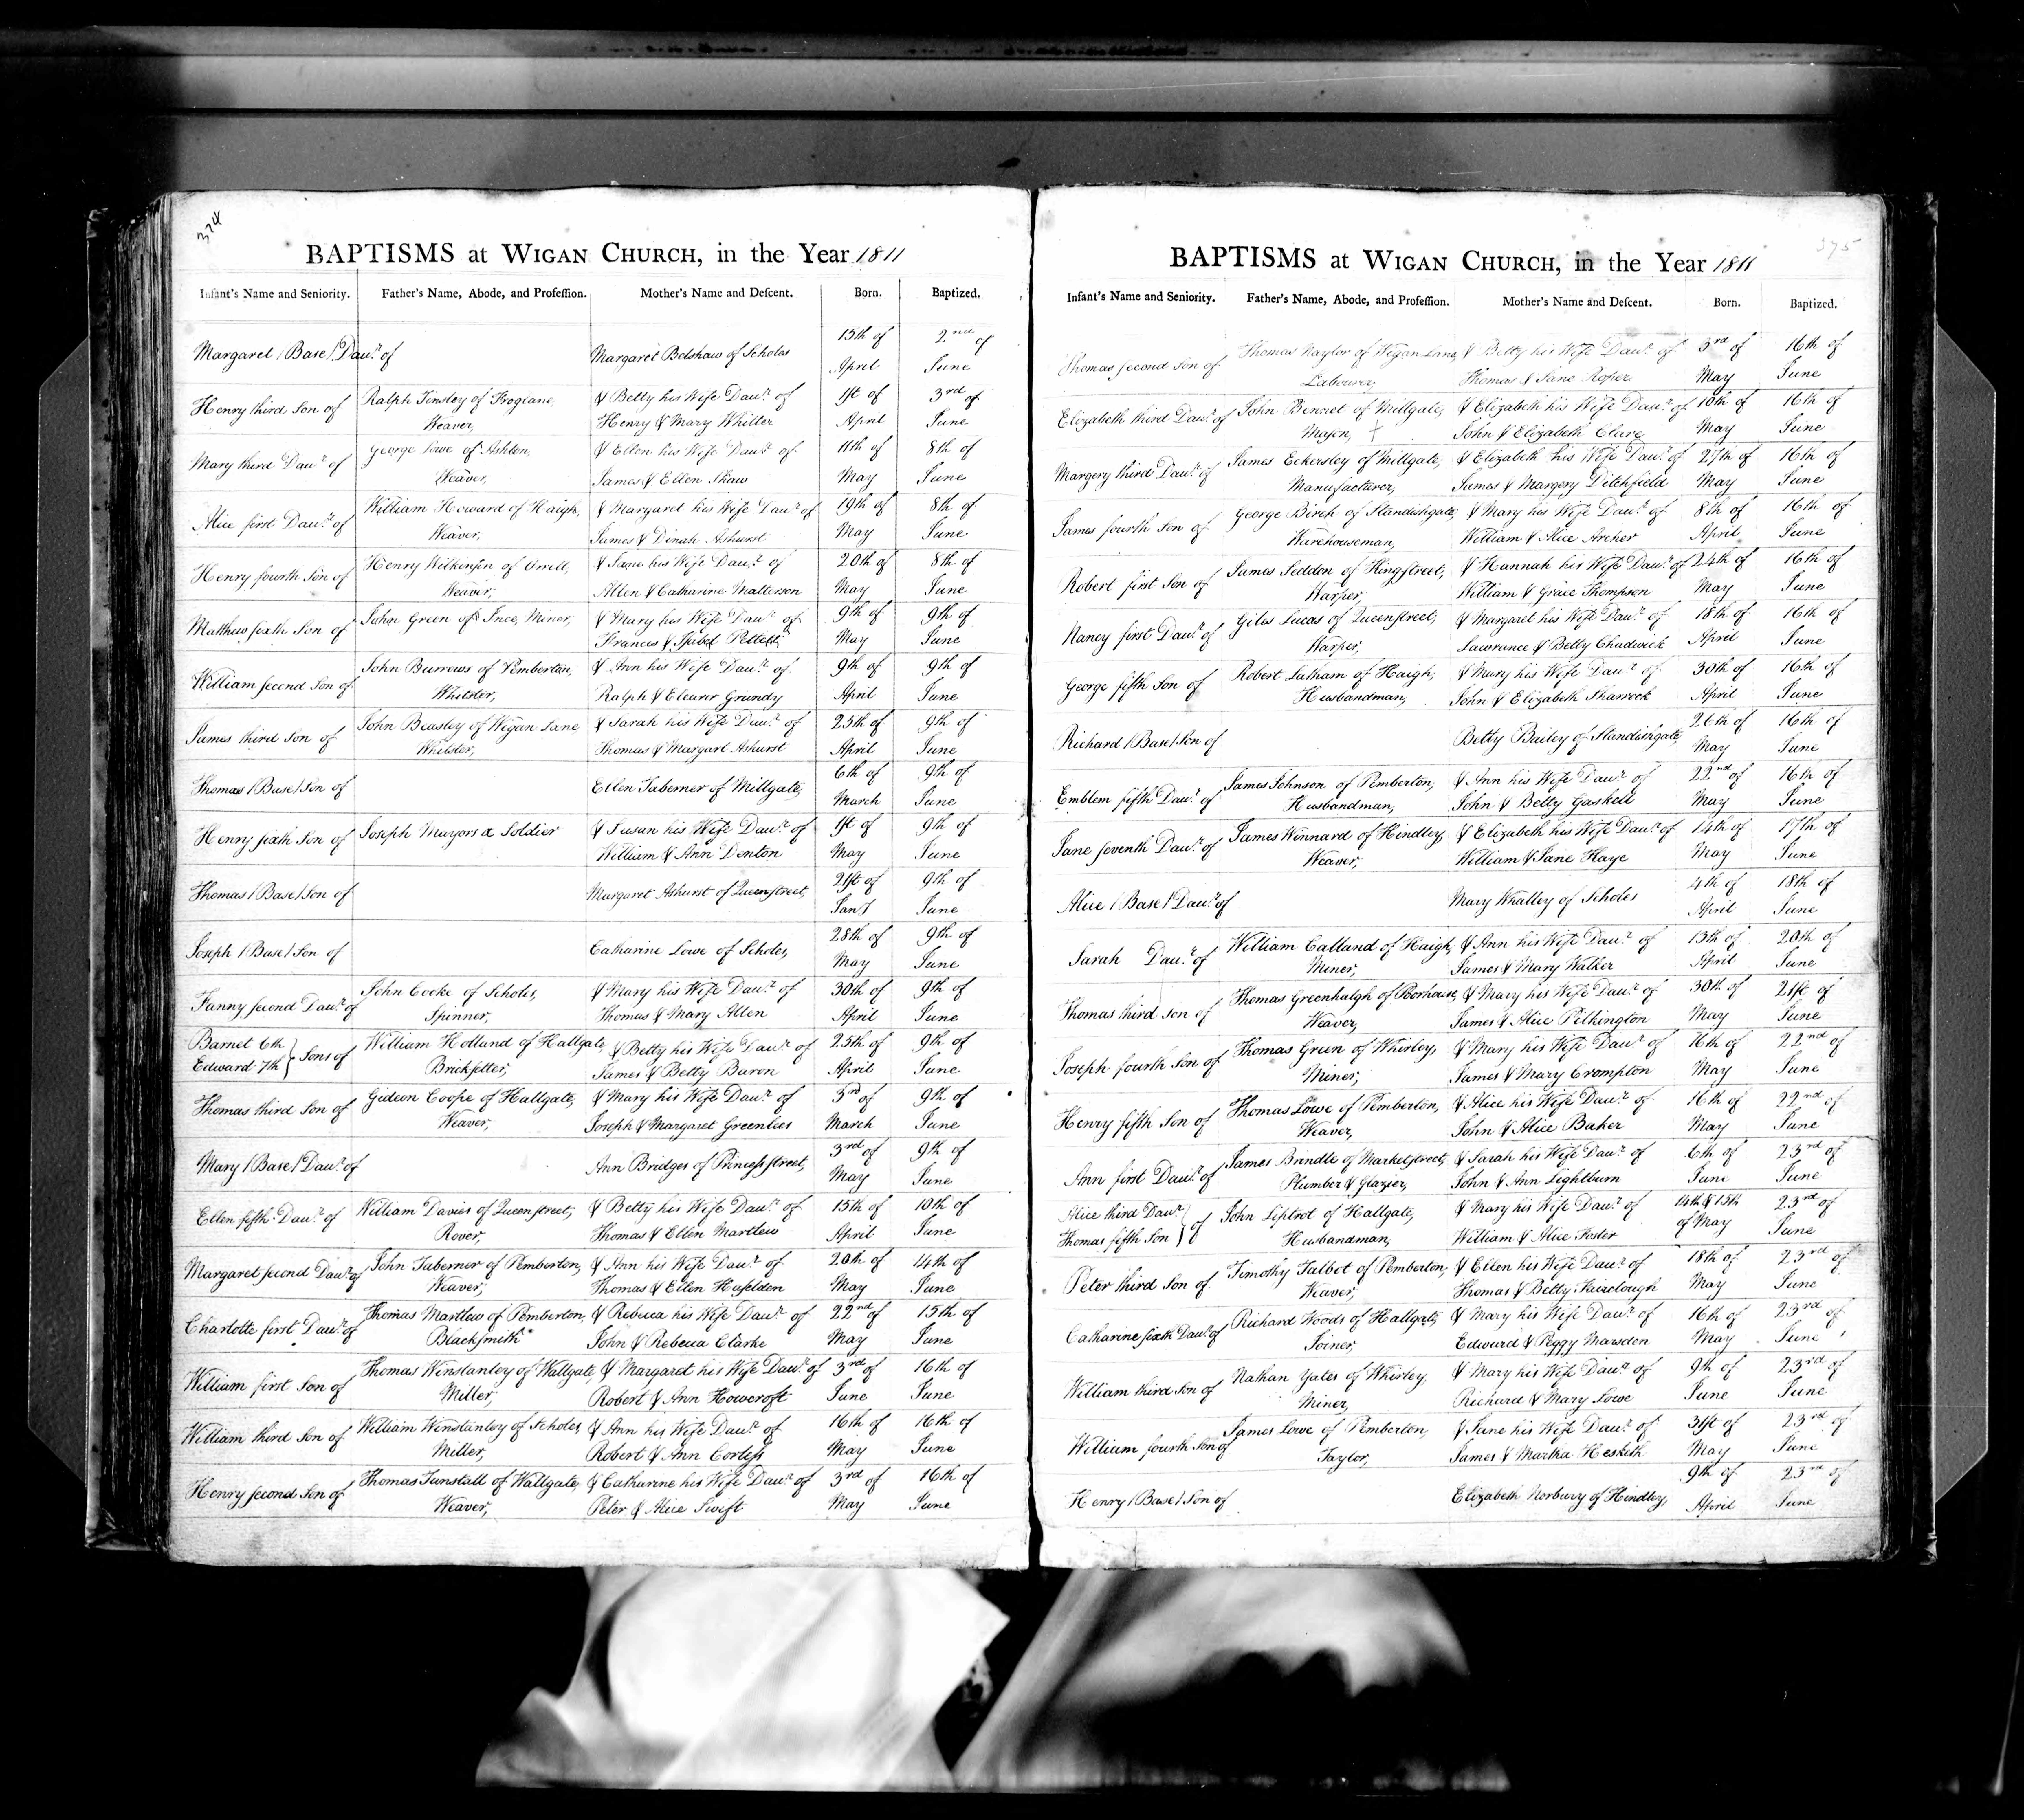 324
BAPTISMS at WIGAN CHURCH, in the Year 1811
Infant's Name and Seniority. Father's Name, Abode, and Profeſſion. Mother's Name and Deſcent. Born. Baptized.
15th of 2nd of
Margaret / Base / Daur. of Margaret Belshaw of Scholes
April June
Ralph Tinsley of Frogiane, & Betty his Wife Daur. of 1ſt of 3rd of
Henry third Son of
Weaver, Henry & Mary Whitter April June
George Lowe of Ashton, & Ellen his Wife Daur. of 11th of 8th of
Mary third Daur. of
Weaver, James & Ellen Shaw May June
William Howard of Haigh, & Margaret his Wife Daur. of 19th of 8th of
Alice first Daur. of
Weaver, James & Dinah Ashurst May June
Henry Wilkinſon of Orrell, & Jane his Wife Daur. of 20th of 8th of
Henry fourth Son of
Weaver, Allen & Catharine Matterson May June
John Green of Ince, Minor, & Mary his Wife Daur. of 9th of 9th of
Matthew ſixth Son of
Francis & Iſabel May June
John Burrows of Pemberton, & Ann his Wife Daur. of 9th of 9th of
William ſecond Son of
Whitster, Ralph & Elearer Grundy April June
John Beasley of Wigan Lane & Sarah his Wife Daur. of 25th of 9th of
James third Son of
Whitster, Thomas & Margart Ashurst April June
6th of 9th of
Thomas / Base / Son of Ellen Taberner of Millgate,
March June
Henry ſixth Son of Joseph Mayors a Soldier & Susan his Wife Daur. of 1ſt of 9th of
William & Ann Denton May June
21ſt of 9th of
Thomas / Base / Son of Margaret Ashurst of Queenſtreet,
Jany June
28th of 9th of
Joseph / Base / Son of Catharine Lowe of Scholes,
May June
John Cooke of Scholes, & Mary his Wife Daur. of 30th of 9th of
Fanny ſecond Daur. of
Spinner, Thomas & Mary Allen April June
Barnet 6th William Holland of Hallgate, & Betty his Wife Daur. of 25th of 9th of
Edward 7th } Sons of Brickſetter, James & Betty Baron April June
Gideon Coope of Hallgate, & Mary his Wife Daur. of 3rd of 9th of
Thomas third Son of
Weaver, Joseph & Margaret Greenlees March June
3rd of 9th of
Mary / Base / Daur. of Ann Bridges of Princeſsſtreet,
May June
William Davies of Queenſtreet, & Betty his Wife Daur. of 15th of 10th of
Ellen fifth Daur. of
Rover, Thomas & Ellen Martlew April June
John Taberner of Pemberton, & Ann his Wife Daur. of 20th of 14th of
Margaret ſecond Daur. of
Weaver, Thomas & Ellen Huſelden May June
Thomas Martlew of Pemberton, & Rebecca his Wife Daur. of 22nd of 15th of
Charlotte first Daur. of
Blackſmith John & Rebecca Clarke May June
Thomas Winstanley of Wallgate, & Margaret his Wife Daur. of 3rd of 16th of
William first Son of
Miller, Robert & Ann Howcroft June June
William Winstanley of Scholes, & Ann his Wife Daur. of 16th of 16th of
William third Son of
Miller, Robert & Ann Corleſs May June
Thomas Tunstall of Wallgate, & Catharine his Wife Daur. of 3rd of 16th of
Henry ſecond Son of
Weaver, Peter & Alice Swift May June
375
BAPTISMS at WIGAN CHURCH, in the Year 1811
Infant's Name and Seniority. Father's Name, Abode, and Profeſſion. Mother's Name and Deſcent. Born. Baptized.
Thomas Naylor of Wigan Lane, & Betty his Wife Daur. of 3rd of 16th of
Thomas ſecond Son of
Labourer, Thomas & Jane Roper May June
John Bennet of Millgate, & Elizabeth his Wife Daur. of 10th of 16th of
Elizabeth third Daur. of
Maſon, John & Elizabeth Clare May June
James Eckersley of Millgate, & Elizabeth his Wife Daur. of 27th of 16th of
Margery third Daur. of
Manufacturer, James & Margery Ditchfield May June
George Birch of Standishgate, & Mary his Wife Daur. of 8th of 16th of
James fourth Son of
Warehouseman, William & Alice Archer April June
James Seddon of Kingſtreet, & Hannah his Wife Daur. of 24th of 16th of
Robert first Son of
Warper, William & Grace Thompson May June
Giles Lucas of Queenſtreet, & Margaret his Wife Daur. of 18th of 16th of
Nancy first Daur. of
Warper, Lawrance & Betty Chadwick April June
Robert Latham of Haigh, & Mary his Wife Daur. of 30th of 16th of
George fifth Son of
Husbandman, John & Elizabeth Sharrock April June
26th of 16th of
Richard / Base / Son of Betty Bailey of Standishgate,
May June
James Johnson of Pemberton, & Ann his Wife Daur. of 22nd of 16th of
Emblem fifth Daur. of
Husbandman, John & Betty Gaskell May June
James Winnard of Hindley, & Elizabeth his Wife Daur. of 14th of 17th of
Jane ſeventh Daur. of
Weaver, William & Jane Haye May June
4th of 18th of
Alice / Base / Daur. of Mary Whalley of Scholes
April June
William Calland of Haigh, & Ann his Wife Daur. of 13th of 20th of
Sarah Daur. of
Miner, James & Mary Walker April June
Thomas Greenhalgh of Poorhouse, & Mary his Wife Daur. of 30th of 21ſt of
Thomas third Son of
Weaver, James & Alice Pilkington May June
Thomas Green of Whirley, & Mary his Wife Daur. of 16th of 22nd of
Joseph fourth Son of
Miner, James & Mary Crompton May June
Thomas Lowe of Pemberton, & Alice his Wife Daur. of 16th of 22nd of
Henry fifth Son of
Weaver, John & Alice Baker May June
James Brindle of Marketſtreet, & Sarah his Wife Daur. of 6th of 23rd of
Ann first Daur. of
Plumber & Glazier, John & Ann Lightburn June June
Alice third Daur. John Liptrot of Hallgate, & Mary his Wife Daur. of 14th & 15th 23rd of
Thomas fifth Son } of Husbandman, William & Alice Foster of May June
Timothy Talbot of Pemberton, & Ellen his Wife Daur. of 18th of 23rd of
Peter third Son of
Weaver, Thomas & Betty Fairclough May June
Richard Woods of Hallgate, & Mary his Wife Daur. of 16th of 23rd of
Catharine ſixth Daur. of
Joiner, Edward & Peggy Marsden May June
Nathan Yates of Whirley, & Mary his Wife Daur. of 9th of 23rd of
William third Son of
Miner, Richard & Mary Lowe June June
James Lowe of Pemberton, & Jane his Wife Daur. of 31ſt of 23rd of
William fourth Son of
Taylor, James & Martha Hesketh May June
9th of 23rd of
Henry / Base / Son of Elizabeth Norbury of Hindley,
April June